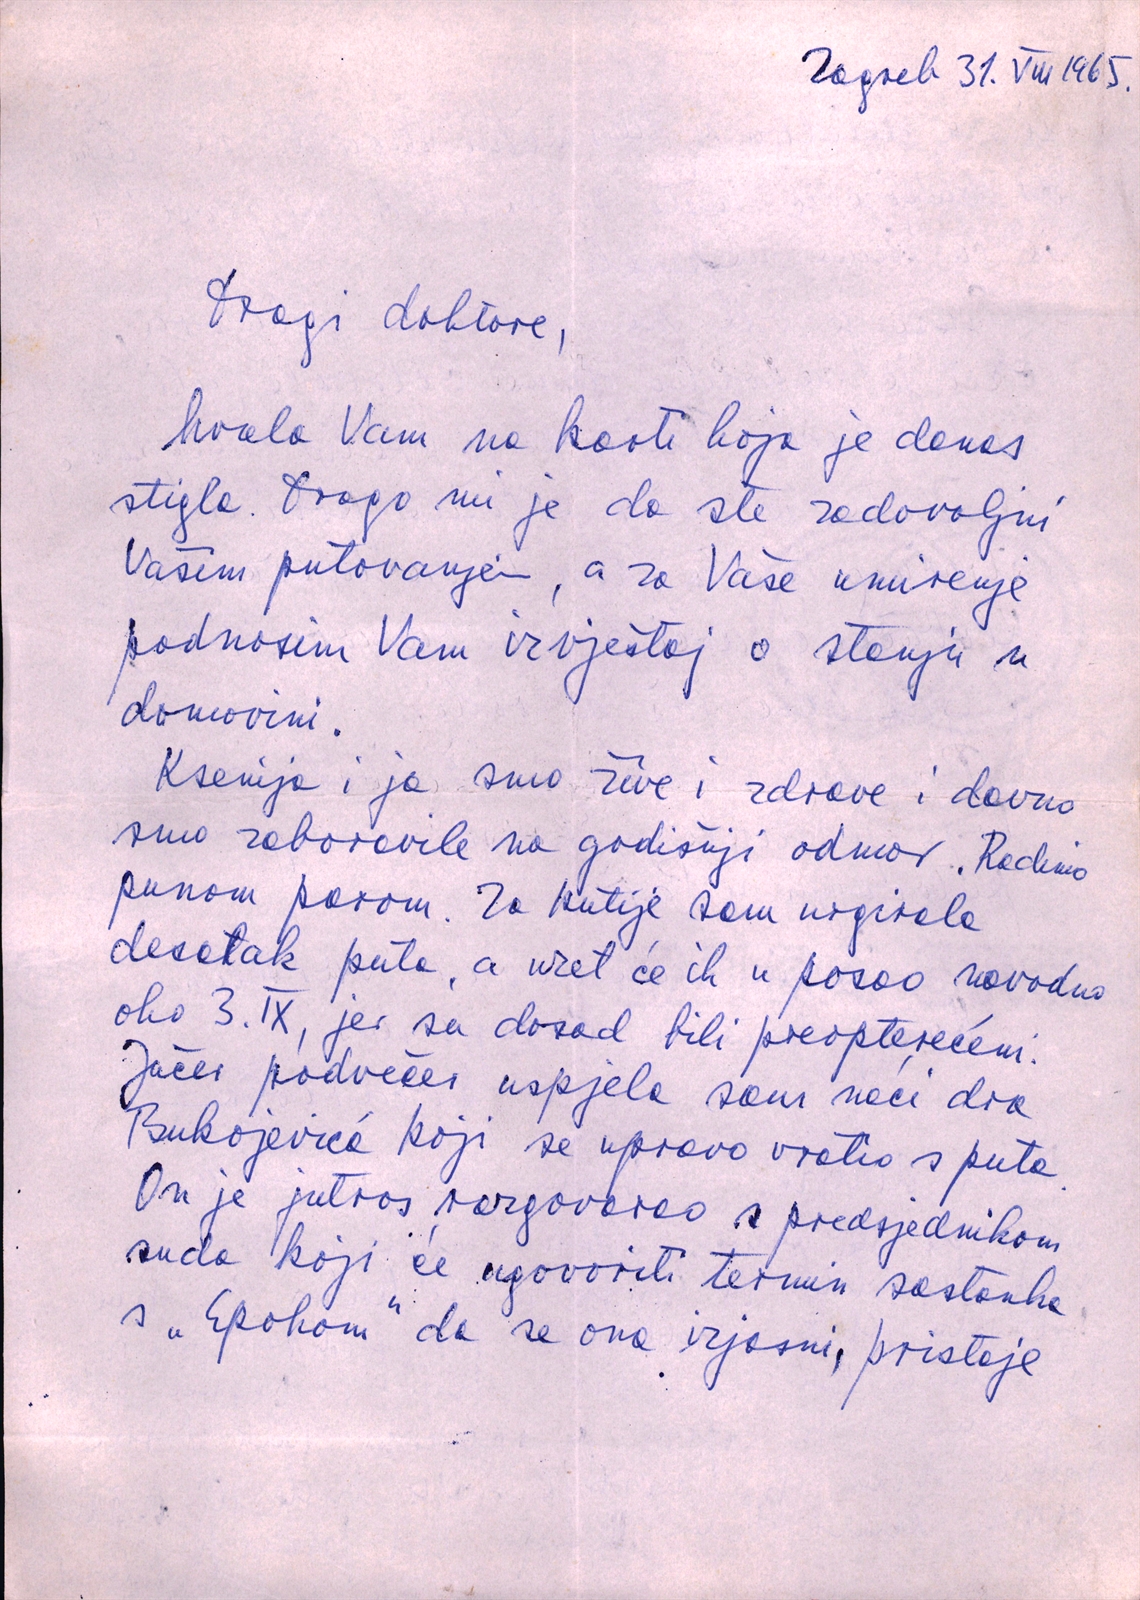 Zagreb 31. VIII 1965.
Dragi doktore,
hvala Vam na karti koja je danas
stigla. Drago mi je da ste zadovoljni
Vašim putovanjem, a za Vaše umirenje
podnosim Vam izvještaj o stanju u
domovini.
Ksenija i ja smo žive i zdrave i davno
smo zaboravile na godišnji odmor. Radimo
punom parom. Za kutije sam urgirala
desetak puta, a uzet će ih u posao navodno
oko 3. IX, jer su dosad bili preopterećeni.
Jučer podvečer uspjela sam naći dra
Bukojevića koji se upravo vratio s puta.
On je jutros razgovarao s predsjednikom
suda koji će ugovoriti termin sastanka
s „Epohom" da se ona izjasni, pristaje